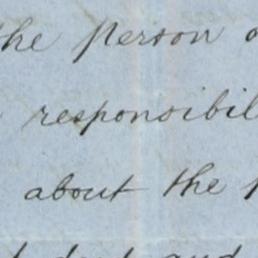 the person
responsibil
about the
and